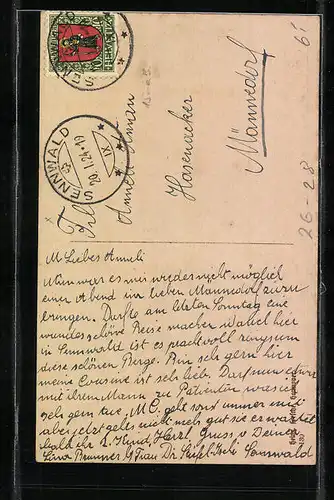 SENNWALD
20. II. 24 · 19
IX
SENNWALD
HELVETIA
Frl.
Anneli Aman
Hasenacker
Männedorf
6.
26-28
M Liebes Anneli
Nun war es mir wieder nicht möglich
einen Abend im lieben Männedorf zuzu
bringen. Durfte am letzten Sonntag eine
wunderschöne Reise machen hier
in Sennwald ist es prachtvoll ringsum
diese schönen Berge. Bin sehr gern hier
meine Cousine ist sehr lieb. Darf nun
mit ihrem Mann zu Patienten was ich
sehr gern tue, geht sonst immer mit
aber jetzt gehts nicht mehr gut sie erwartet
bald ihr 2. Kind, Herzl. Gruss v Deiner
Brunner b/ Frau Dr. Sennwald